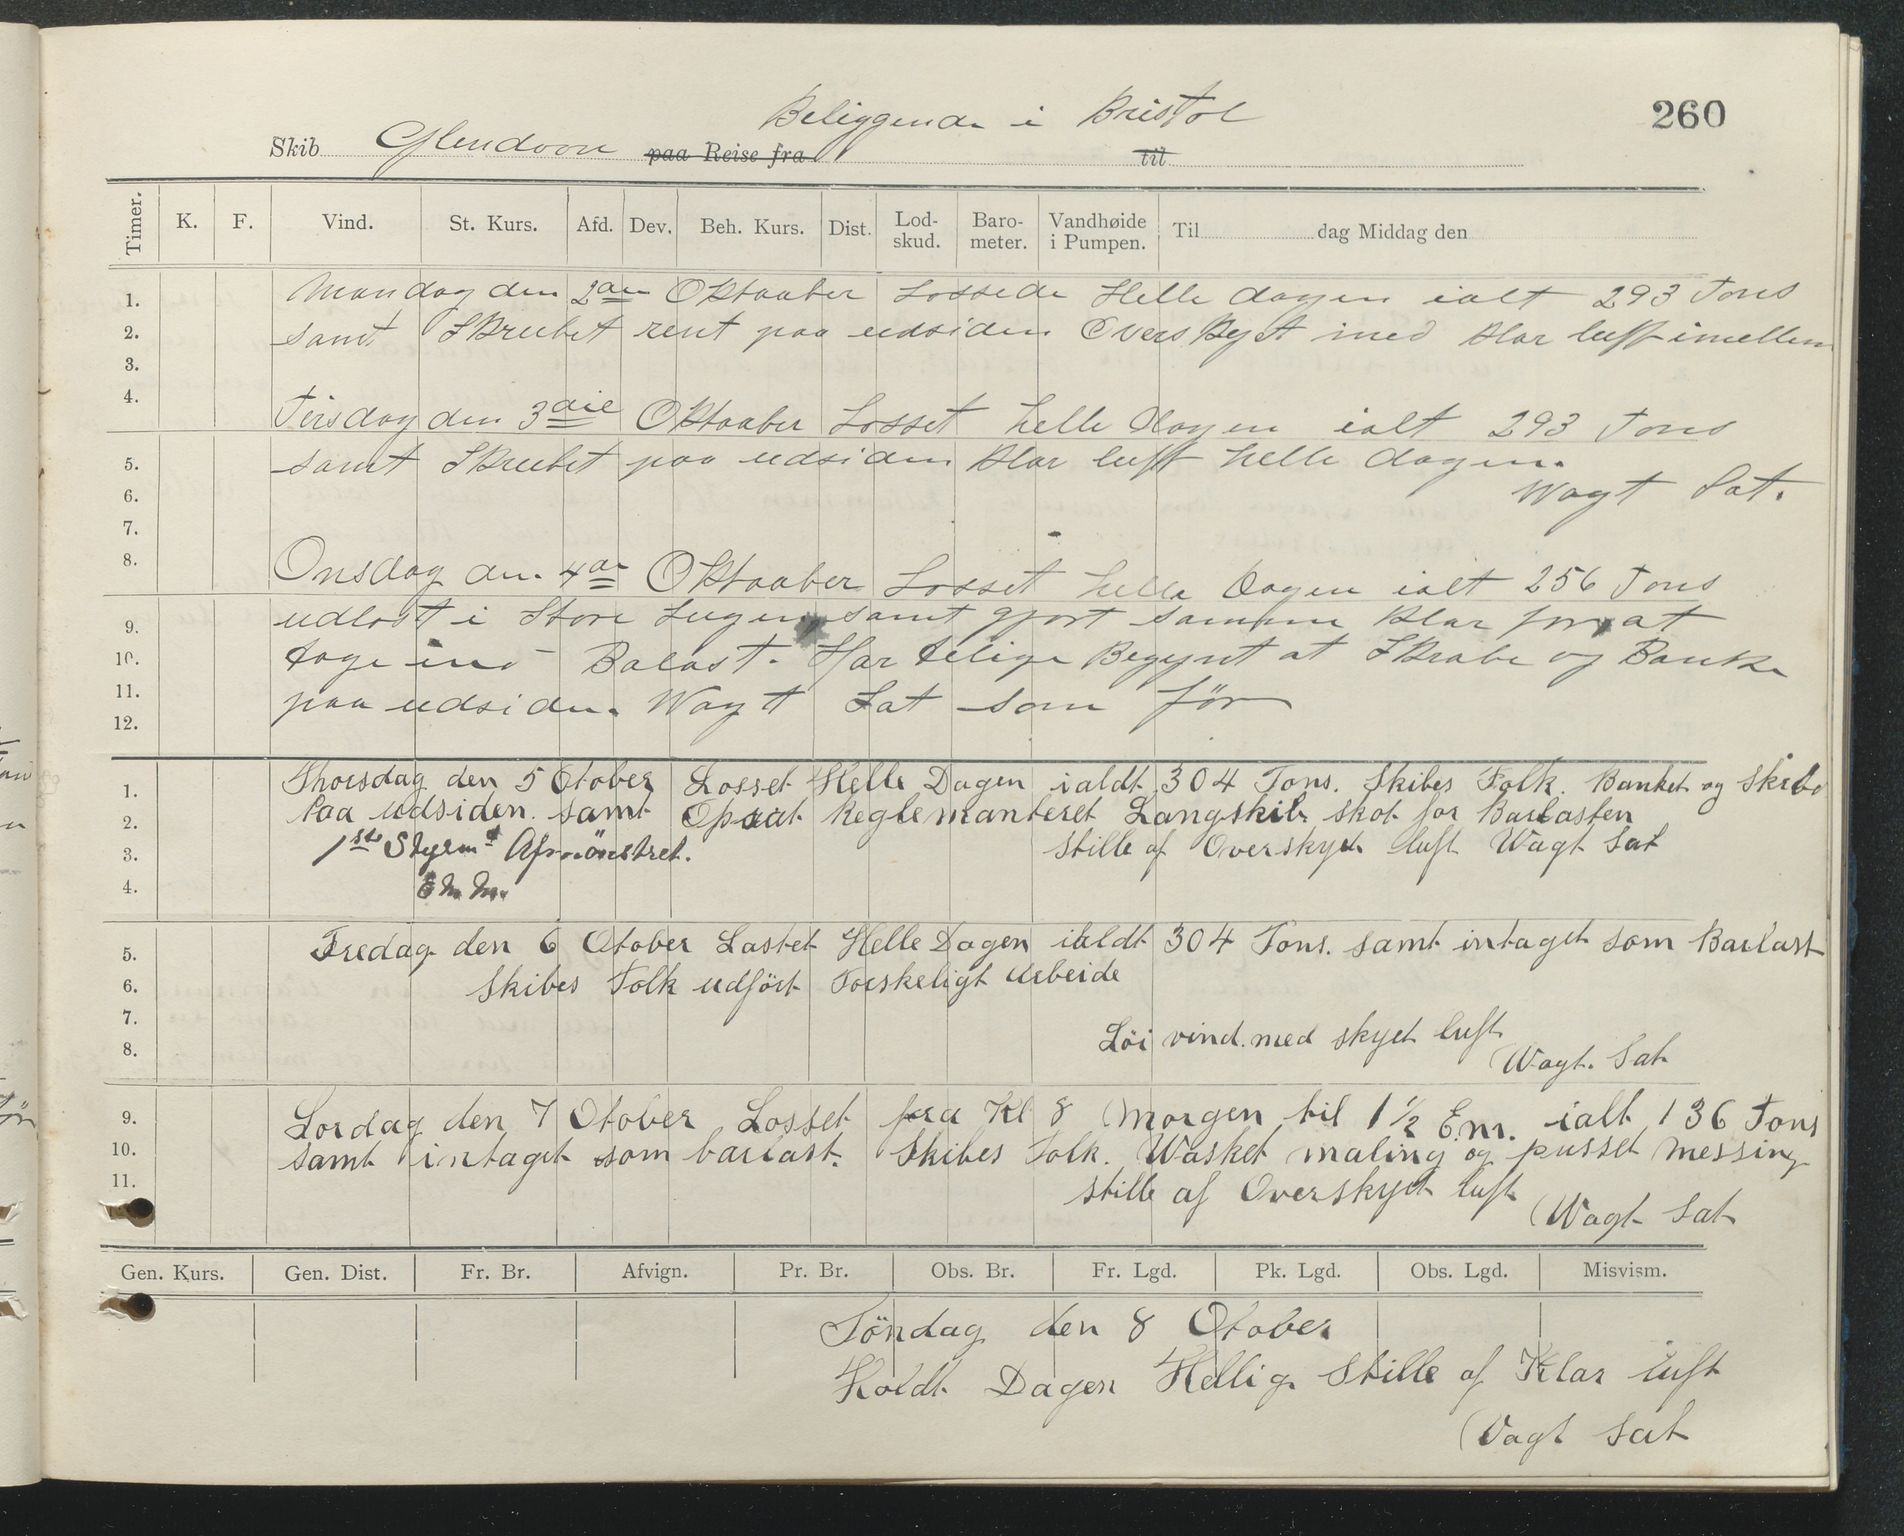 260
Beliggende i Bristol
Skib Glendoon paa Reise fra til
Timer. K. F. Vind. St. Kurs. Afd. Dev. Beh. Kurs. Dist. Lod-skud. Baro-meter. Vandhøide i Pumpen. Til dag Middag den
1. Mandag den 2den Oktaaber Lossede Helle dagen ialt 293 Tons
2. samt Skrubet rent paa udsiden Overskyet med klar luft imellem
3.
4. Tirsdag den 3die Oktaaber Losset helle dagen ialt 293 Tons
5. samt Skrubet paa udsiden klar luft helle dagen.
6. Wagt Sat.
7.
8. Onsdag den 4de Oktaaber Losset helle Dagen ialt 256 Tons
9. udlost i Store Lugen samt gjort samme klar for at
10. tage ind Balast. Har Begynt at Skrabe og Banke
11. paa udsiden. Wagt Sat som før
12.
1. Thorsdag den 5 Otober Losset Helle Dagen ialdt 304 Tons. Skibes Folk. Banket og Skrabt
2. Paa udsiden. samt Opsat Reglemanteret Langskibs skot for Barlasten
3. 1ste Styrmd Afmönstret. stille af Overskyet luft Wagt Sat
4. E M M.
5. Fredag den 6 Otober Lastet Helle Dagen ialdt 304 Tons. samt intaget som Barlast
6. Skibes Folk udfört Forskeligt Arbeide
7. Löi vind. med skyet luft
8. Wagt. Sat
9. Lordag den 7 Otober Losset fra Kl 8 Morgen til 1 1/2 E.m. ialt 136 Tons
10. samt intaget som barlast. Skibes Folk. Wasket maling og pusset Messing
11. stille af Overskyet luft
Wagt Sat
Gen. Kurs. Gen. Dist. Fr. Br. Afvign. Pr. Br. Obs. Br. Fr. Lgd. Pk. Lgd. Obs. Lgd. Misvism.
Söndag den 8 Otober
Holdt Dagen Hellig. Stille af Klar luft
Vagt Sat